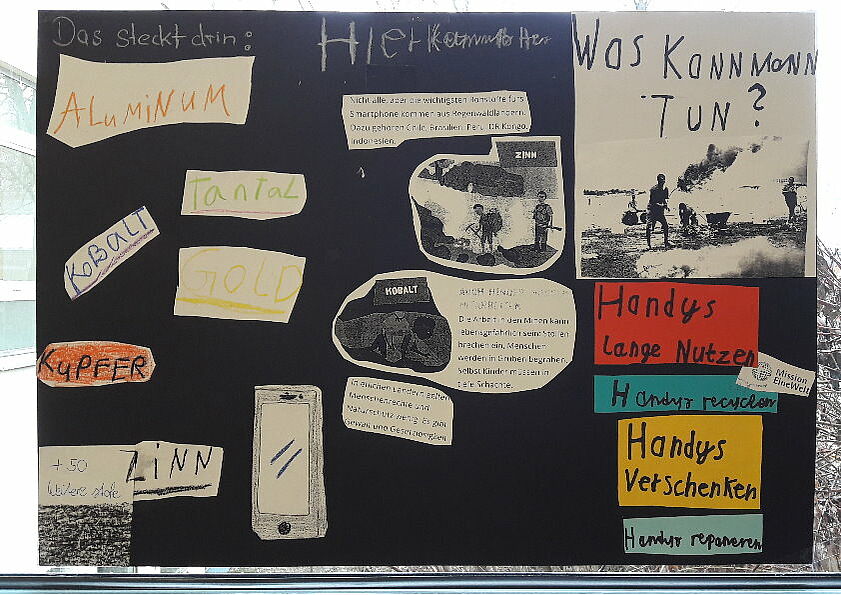 Das steckt drin:
ALUMINUM
Tantal
KOBALT
GOLD
KUPFER
ZINN
+ 50
Weitere stofe
Hier
Nicht alle, aber die wichtigsten Rohstoffe fürs
Smartphone kommen aus Regenwaldländern.
Dazu gehören Chile, Brasilien, Peru, DR Kongo,
Indonesien.
ZINN
KOBALT
AUCH KINDER
Die Arbeit in den Minen kann
lebensgefährlich sein: Stollen
brechen ein, Menschen
werden in Gruben begraben.
Selbst Kinder müssen in
tiefe Schächte.
In etlichen Ländern gelten
Menschenrechte und
Naturschutz wenig. Es gibt
Gewalt und Gesetzlosigkeit
Was KannMann
TUN?
Handys
lange Nutzen
Mission
EineWelt
Handys recyclen
Handys
Verschenken
Handys reparieren